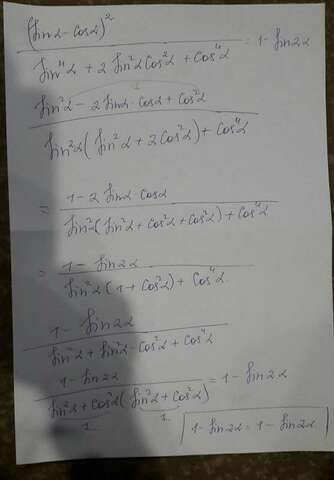 (sinα - cosα)²
/ sin⁴α + 2 sin²α cos²α + cos⁴α = 1 - sin2α
sin²α - 2 sinα · cosα + cos²α
/ sin²α (sin²α + 2cos²α) + cos⁴α
= 1 - 2 sinα · cosα
/ sin²(sin²α + cos²α + cos²α) + cos⁴α
= 1 - sin2α
/ sin²α (1 + cos²α) + cos⁴α.
1 - sin2α
/ sin²α + sin²α · cos²α + cos⁴α
1 - sin2α
/ sin²α + cos²α (sin²α + cos²α) = 1 - sin2α
1 1
1 - sin2α = 1 - sin2α.